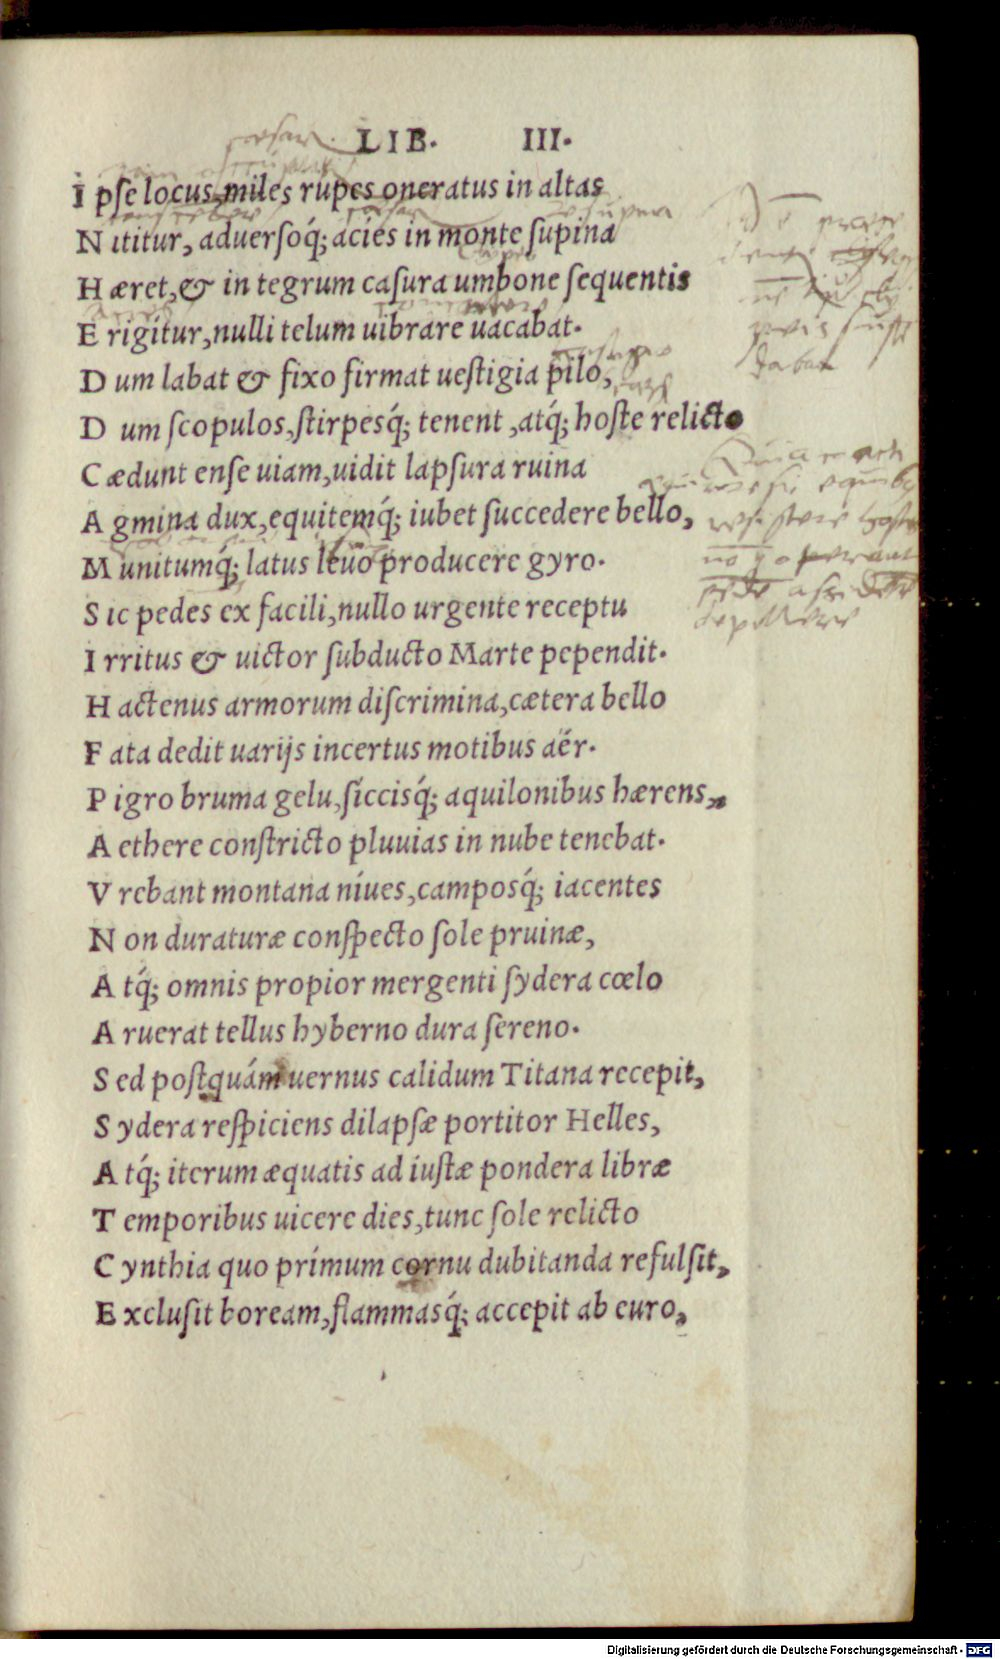 LIB. III.
I pſe locus, miles rupes oneratus in altas
N ititur, aduerſoq́; acies in monte ſupina
H æret, & in tegrum caſura umbone ſequentis
E rigitur, nulli telum uibrare uacabat.
D um labat & fixo firmat ueſtigia pilo,
D um ſcopulos, ſtirpesq́; tenent, atq́; hoſte relicto
C ædunt enſe uiam, uidit lapſura ruina
A gmina dux, equitemq́; iubet ſuccedere bello,
M unitumq́; latus leuo producere gyro.
S ic pedes ex facili, nullo urgente receptu
I rritus & uictor ſubducto Marte pependit.
H actenus armorum diſcrimina, cætera bello
F ata dedit uarijs incertus motibus aër.
P igro bruma gelu, ſiccisq́; aquilonibus hærens,
A ethere conſtricto pluuias in nube tenebat.
V rebant montana niues, camposq́; iacentes
N on duraturæ conſpecto ſole pruinæ,
A tq́; omnis propior mergenti ſydera cœlo
A ruerat tellus hyberno dura ſereno.
S ed poſtquám uernus calidum Titana recepit,
S ydera reſpiciens dilapſæ portitor Helles,
A tq́; iterum æquatis ad iuſtæ pondera libræ
T emporibus uicere dies, tunc ſole relicto
C ynthia quo primum cornu dubitanda refulſit,
E xcluſit boream, flammasq́; accepit ab euro,
Digitalisierung gefördert durch die Deutsche Forschungsgemeinschaft - DFG